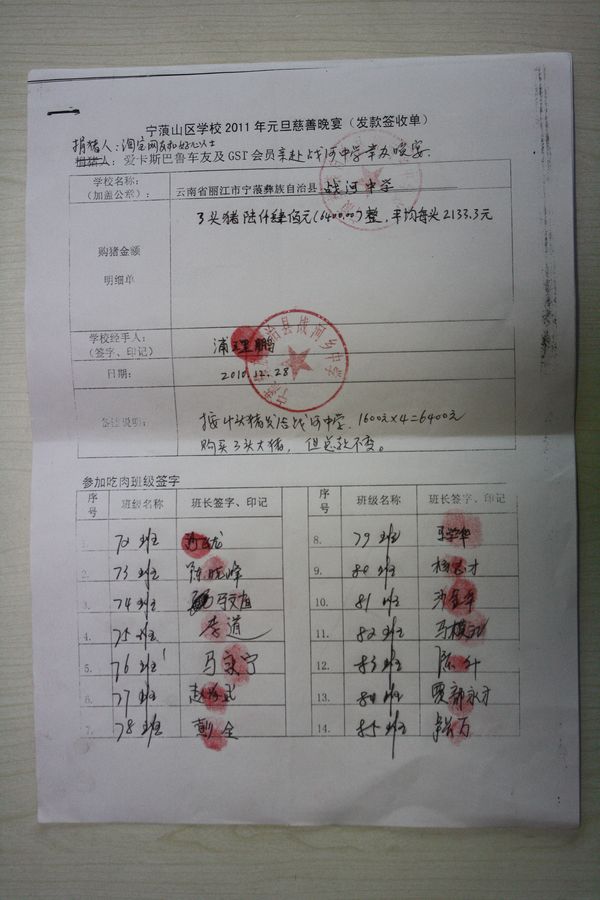 宁蒗山区学校 2011 年元旦慈善晚宴（发款签收单）
捐猪人：淘宝网友和好心人士
爱卡斯巴鲁车友及 GSI 会员亲赴战河中学举办晚宴.
学校名称：
（加盖公系）：
云南省丽江市宁蒗彝族自治县战河中学
3头猪陆仟肆佰元(6400.00)整，平均每头2133.3元
购猪金额
明细单
学校经手人：
（签字、印记）
浦理鹏
治县战河乡中学
日期：
2010.12.28
备注说明：
按4头猪发给战河中学，1600元×4=6400元
购买3头大猪，但总款不变。
参加吃肉班级签字
序号 班级名称 班长签字、印记 序号 班级名称 班长签字、印记
1. 72班 8. 79班
2. 73班 陈晓峰 9. 80班 杨志才
3. 74班 10. 81班 沙金华
4. 75班 李道 11. 82班
5. 76班 马永宁 12. 83班
6. 77班 13. 84班
7. 78班 彭全 14. 85班